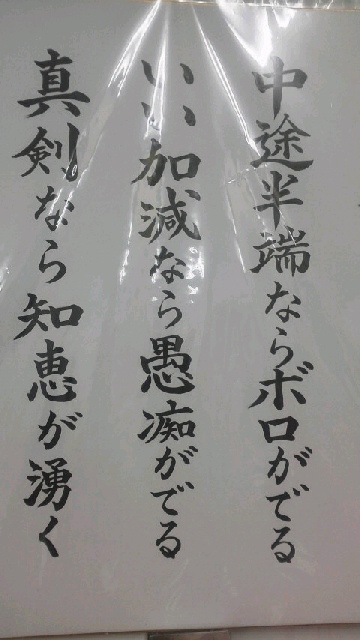 中途半端ならボロがでる
いい加減なら愚痴がでる
真剣なら知恵が湧く